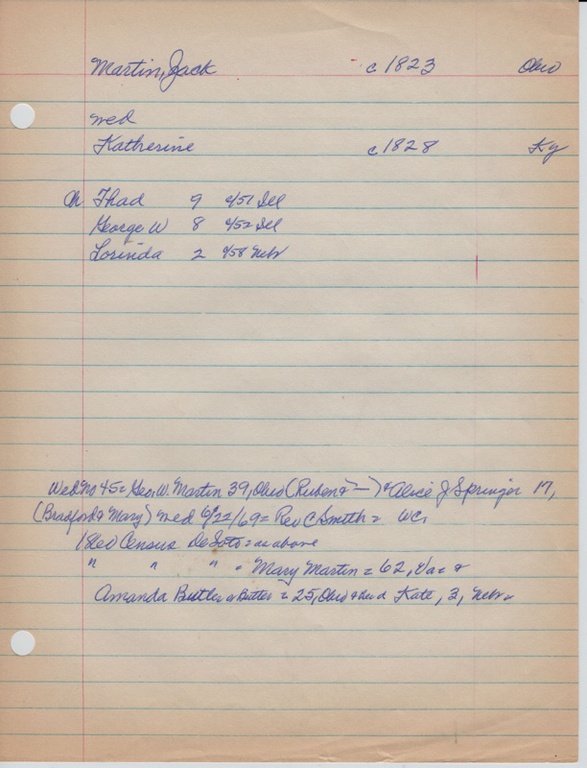 Martin, Jack c 1823 Ohio
wed
Katherine c 1828 Ky
Ch Thad 9 c/51 Ill
George W 8 c/52 Ill
Lorinda 2 c/58 Nebr
Wed No 45 = Geo. W. Martin 39, Ohio (Ruben & —) & Alice J Springer 17,
(Bradford & Mary) wed 6/22/69 = Rev C Smith = WC.
1860 Census DeSoto = as above
" " " " Mary Martin = 62, Va = &
Amanda Butler or Better = 25, Ohio & Kate, 3, Nebr =